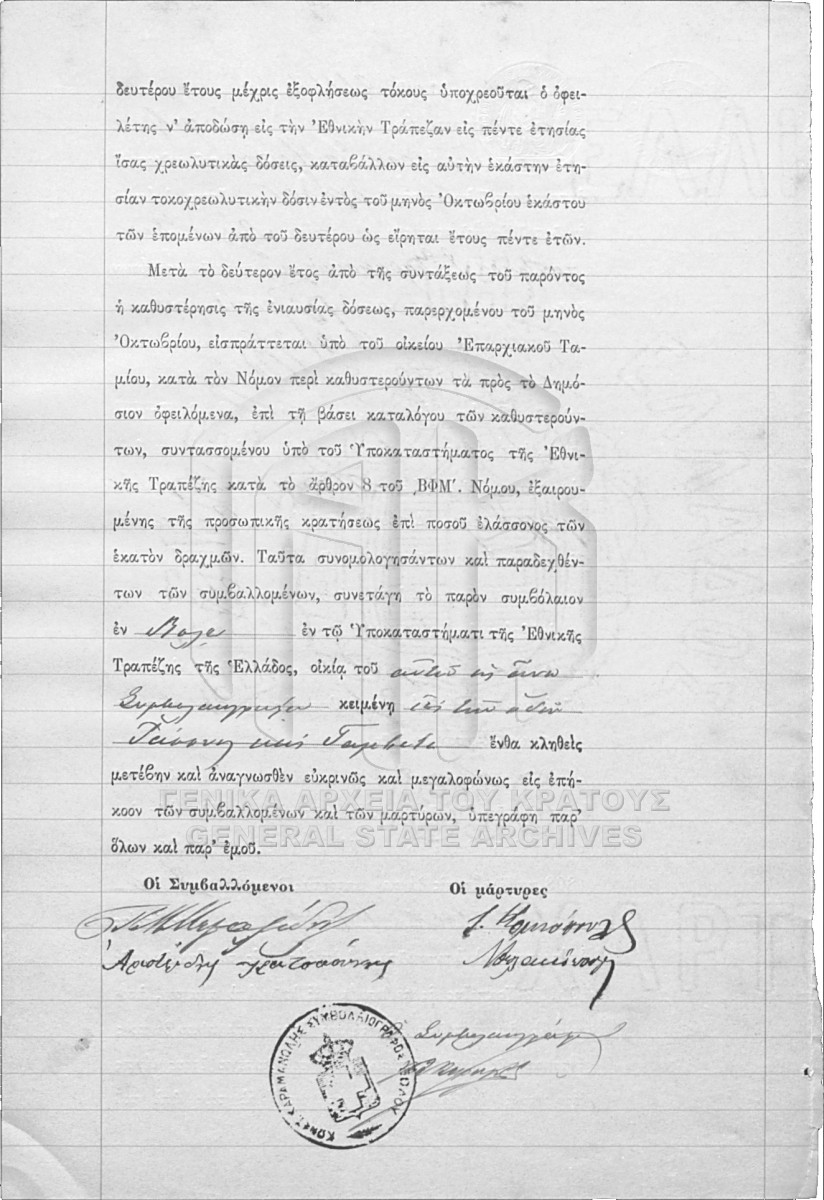 δευτέρου ἔτους μέχρις ἐξοφλήσεως τόκους ὑποχρεοῦται ὁ ὀφει-
λέτης ν' ἀποδώσῃ εἰς τὴν Ἐθνικὴν Τράπεζαν εἰς πέντε ἐτησίας
ἴσας χρεωλυτικὰς δόσεις, καταβάλλων εἰς αὐτὴν ἑκάστην ἐτη-
σίαν τοκοχρεωλυτικὴν δόσιν ἐντὸς τοῦ μηνὸς Ὀκτωβρίου ἑκάστου
τῶν ἑπομένων ἀπὸ τοῦ δευτέρου ὡς εἴρηται ἔτους πέντε ἐτῶν.
Μετὰ τὸ δεύτερον ἔτος ἀπὸ τῆς συντάξεως τοῦ παρόντος
ἡ καθυστέρησις τῆς ἐνιαυσίας δόσεως, παρερχομένου τοῦ μηνὸς
Ὀκτωβρίου, εἰσπράττεται ὑπὸ τοῦ οἰκείου Ἐπαρχιακοῦ Τα-
μίου, κατὰ τὸν Νόμον περὶ καθυστερούντων τὰ πρὸς τὸ Δημό-
σιον ὀφειλόμενα, ἐπὶ τῇ βάσει καταλόγου τῶν καθυστερούν-
των, συντασσομένου ὑπὸ τοῦ Ὑποκαταστήματος τῆς Ἐθνι-
κῆς Τραπέζης κατὰ τὸ ἄρθρον 8 τοῦ ͵ΒΦΜ΄. Νόμου, ἐξαιρου-
μένης τῆς προσωπικῆς κρατήσεως ἐπὶ ποσοῦ ἐλάσσονος τῶν
ἑκατὸν δραχμῶν. Ταῦτα συνομολογησάντων καὶ παραδεχθέν-
των τῶν συμβαλλομένων, συνετάγη τὸ παρὸν συμβόλαιον
ἐν Βόλῳ ἐν τῷ Ὑποκαταστήματι τῆς Ἐθνικῆς
Τραπέζης τῆς Ἑλλάδος, οἰκίᾳ τοῦ
κειμένῃ ἐπὶ τῶν ὁδῶν
Ἰάσονος καὶ Γαμβέτα ἔνθα κληθεὶς
μετέβην καὶ ἀναγνωσθὲν εὐκρινῶς καὶ μεγαλοφώνως εἰς ἐπή-
κοον τῶν συμβαλλομένων καὶ τῶν μαρτύρων, ὑπεγράφη παρ'
ὅλων καὶ παρ' ἐμοῦ.
ΓΕΝΙΚΑ ΑΡΧΕΙΑ ΤΟΥ ΚΡΑΤΟΥΣ
GENERAL STATE ARCHIVES
Οἱ Συμβαλλόμενοι
Οἱ μάρτυρες
Ἀριστείδης
Ὁ Συμβολαιογράφος
ΚΩΝΣΤ. ΚΑΡΑΜΑΝΩΛΗΣ ΣΥΜΒΟΛΑΙΟΓΡΑΦΟΣ ΒΩΛΟΥ